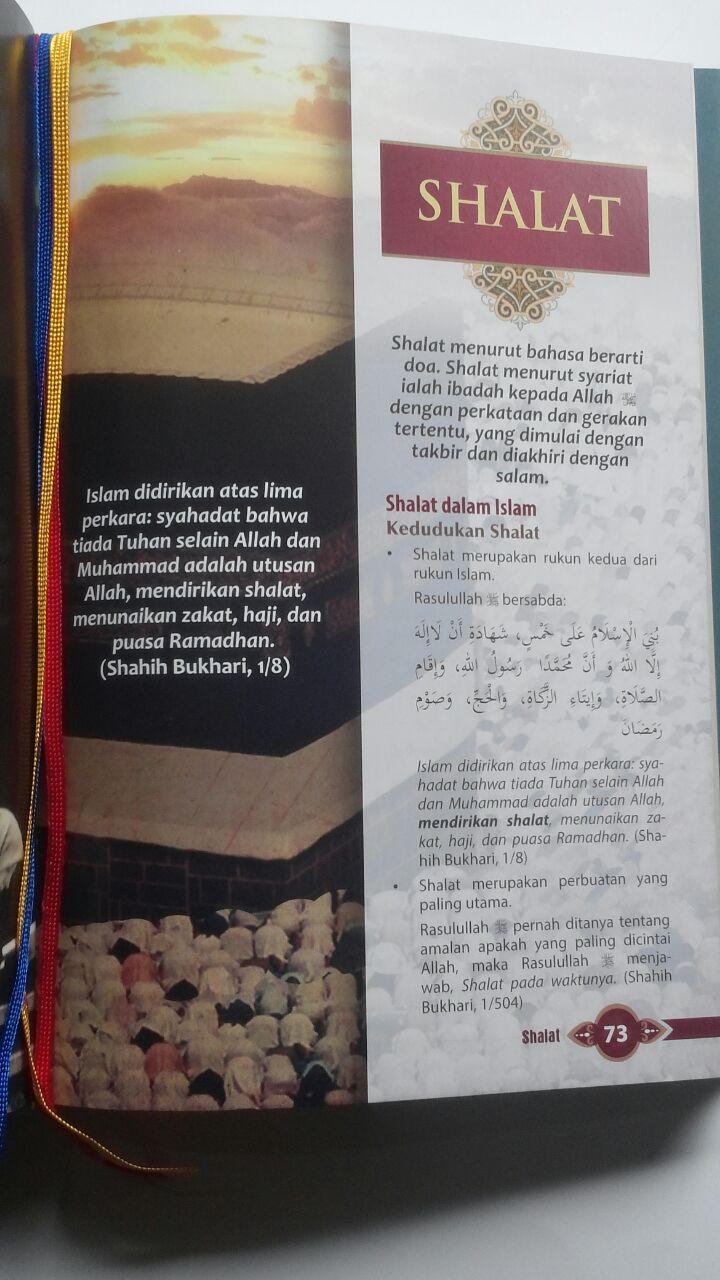 Islam didirikan atas lima
perkara: syahadat bahwa
tiada Tuhan selain Allah dan
Muhammad adalah utusan
Allah, mendirikan shalat,
menunaikan zakat, haji, dan
puasa Ramadhan.
(Shahih Bukhari, 1/8)
SHALAT
Shalat menurut bahasa berarti
doa. Shalat menurut syariat
ialah ibadah kepada Allah ﷻ
dengan perkataan dan gerakan
tertentu, yang dimulai dengan
takbir dan diakhiri dengan
salam.
Shalat dalam Islam
Kedudukan Shalat
• Shalat merupakan rukun kedua dari
rukun Islam.
Rasulullah ﷺ bersabda:
بُنِيَ الْإِسْلَامُ عَلَى خَمْسٍ، شَهَادَةِ أَنْ لَاإِلَهَ
إِلَّا اللهُ وَ أَنَّ مُحَمَّدًا رَسُولُ اللهِ، وَإِقَامِ
الصَّلَاةِ، وَإِيتَاءِ الزَّكَاةِ، وَالْحَجِّ، وَصَوْمِ
رَمَضَانَ
Islam didirikan atas lima perkara: sya-
hadat bahwa tiada Tuhan selain Allah
dan Muhammad adalah utusan Allah,
mendirikan shalat, menunaikan za-
kat, haji, dan puasa Ramadhan. (Sha-
hih Bukhari, 1/8)
• Shalat merupakan perbuatan yang
paling utama.
Rasulullah ﷺ pernah ditanya tentang
amalan apakah yang paling dicintai
Allah, maka Rasulullah ﷺ menja-
wab, Shalat pada waktunya. (Shahih
Bukhari, 1/504)
Shalat 73